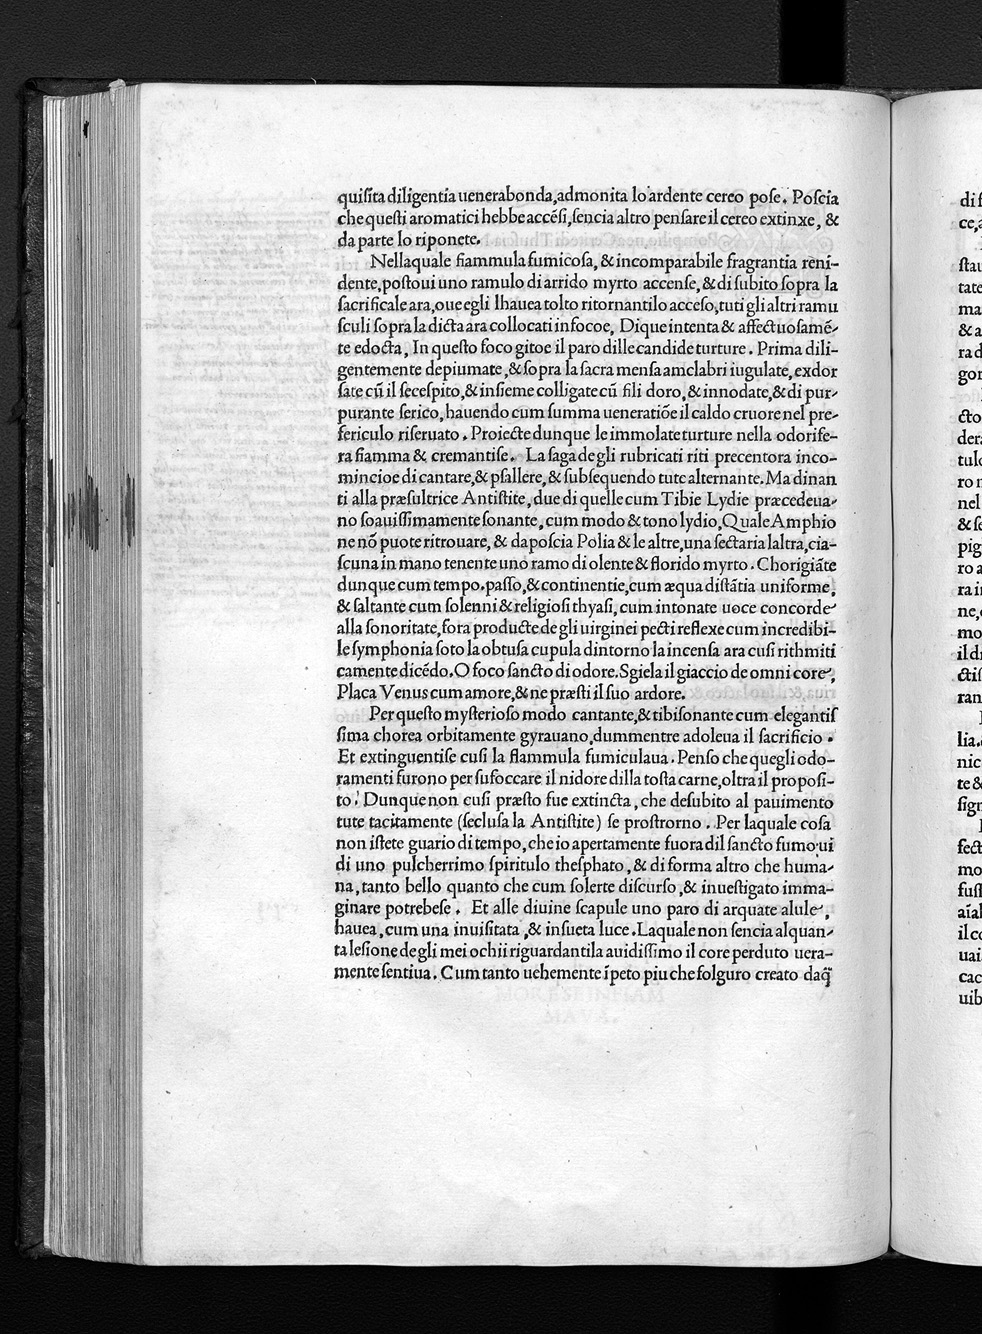 quiſita diligentia uenerabonda, admonita lo ardente cereo poſe. Poſcia
che queſti aromatici hebbe accẽſi, ſencia altro penſare il cereo extinxe, &
da parte lo riponete.
Nellaquale fiammula fumicoſa, & incomparabile fragrantia reni-
dente, poſtoui uno ramulo di arrido myrto accenſe, & di ſubito ſopra la
ſacrificale ara, oue egli lhauea tolto ritornantilo acceſo, tuti gli altri ramu
ſculi ſopra la dicta ara collocati infocoe, Dique intenta & affectuoſamẽ-
te edocta, In queſto foco gitoe il paro dille candide turture. Prima dili-
gentemente depiumate, & ſopra la ſacra menſa amclabri iugulate, exdor
ſate cũ il ſeceſpito, & inſieme colligate cũ fili doro, & innodate, & di pur-
purante ſerico, hauendo cum ſumma ueneratiõe il caldo cruore nel pre-
fericulo riſeruato. Proiecte dunque le immolate turture nella odorife-
ra fiamma & cremantiſe. La ſaga degli rubricati riti precentora inco-
mincioe di cantare, & pſallere, & ſubſequendo tute alternante. Ma dinan
ti alla præſultrice Antiſtite, due di quelle cum Tibie Lydie præcedeua-
no ſoauiſſimamente ſonante, cum modo & tono lydio, Quale Amphio
ne nõ puote ritrouare, & da poſcia Polia & le altre, una ſectaria laltra, cia-
ſcuna in mano tenente uno ramo di olente & florido myrto. Chorigiãte
dunque cum tempo. paſſo, & continentie, cum æqua diſtãtia uniforme,
& ſaltante cum ſolenni & religioſi thyaſi, cum intonate uoce concorde
alla ſonoritate, fora producte degli uirginei pecti reflexe cum incredibi-
le ſymphonia ſoto la obtuſa cupula dintorno la incenſa ara cuſi rithmiti
camente dicẽdo. O foco ſancto di odore. Sgiela il giaccio de omni core,
Placa Venus cum amore, & ne præſti il ſuo ardore.
Per queſto myſterioſo modo cantante, & tibiſonante cum elegantiſ
ſima chorea orbitamente gyrauano, dummentre adoleua il ſacrificio.
Et extinguentiſe cuſi la flammula fumiculaua. Penſo che quegli odo-
ramenti furono per ſufoccare il nidore dilla toſta carne, oltra il propoſi-
to. Dunque non cuſi præſto fue extincta, che deſubito al pauimento
tute tacitamente (ſecluſa la Antiſtite) ſe proſtrorno. Per laquale coſa
non iſtete guario di tempo, che io apertamente fuora dil ſancto fumo ui
di uno pulcherrimo ſpiritulo theſphato, & di forma altro che huma-
na, tanto bello quanto che cum ſolerte diſcurſo, & inueſtigato imma-
ginare potrebeſe. Et alle diuine ſcapule uno paro di arquate alule,
hauea, cum una inuiſitata, & inſueta luce. Laquale non ſencia alquan-
ta leſione degli mei ochii riguardantila auidiſſimo il core perduto uera-
mente ſentiua. Cum tanto uehemente ĩpeto piu che folguro creato daq̃